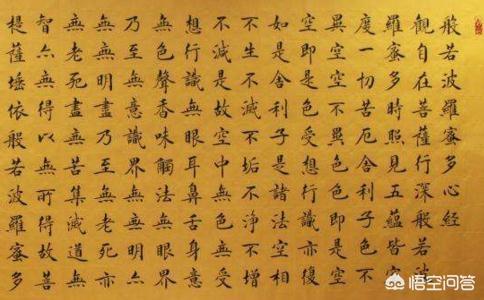 般若波羅蜜多心經
觀自在菩薩行深般若波
羅蜜多時照見五蘊皆空
度一切苦厄舍利子色不
異空空不異色色即是空
空即是色受想行識亦復
如是舍利子是諸法空相
不生不滅不垢不淨不增
不減是故空中無色無受
想行識無眼耳鼻舌身意
無色聲香味觸法無眼界
乃至無意識界無無明亦
無無明盡乃至無老死亦
無老死盡無苦集滅道無
智亦無得以無所得故菩
提薩埵依般若波羅蜜多
悟空问答